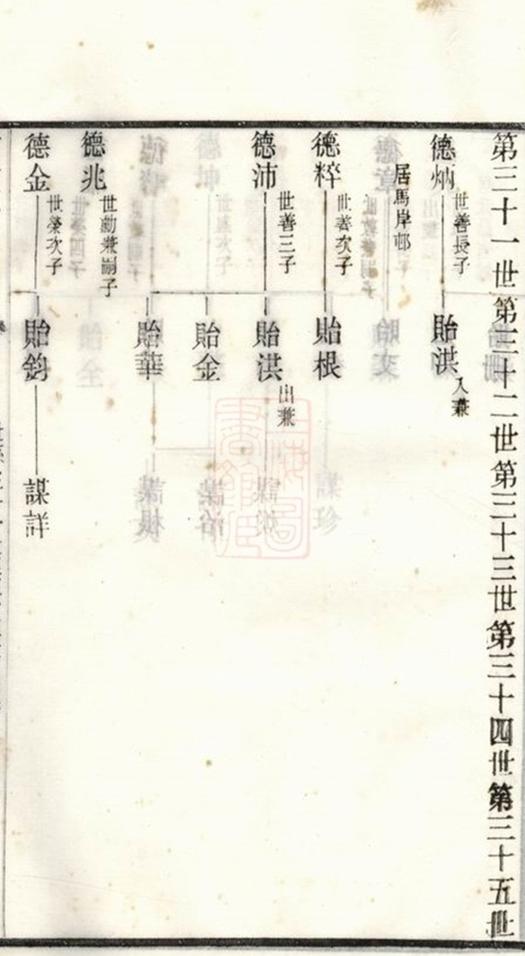 第三十一世第三十二世第三十三世第三十四世第三十五世
德炳
世善長子
貽洪
入兼
居馬岸邨
德粹
世善次子
貽根
德沛
世善三子
貽洪
出兼
貽金
貽華
德兆
世勳兼嗣子
德金
世榮次子
貽鈞
謀詳